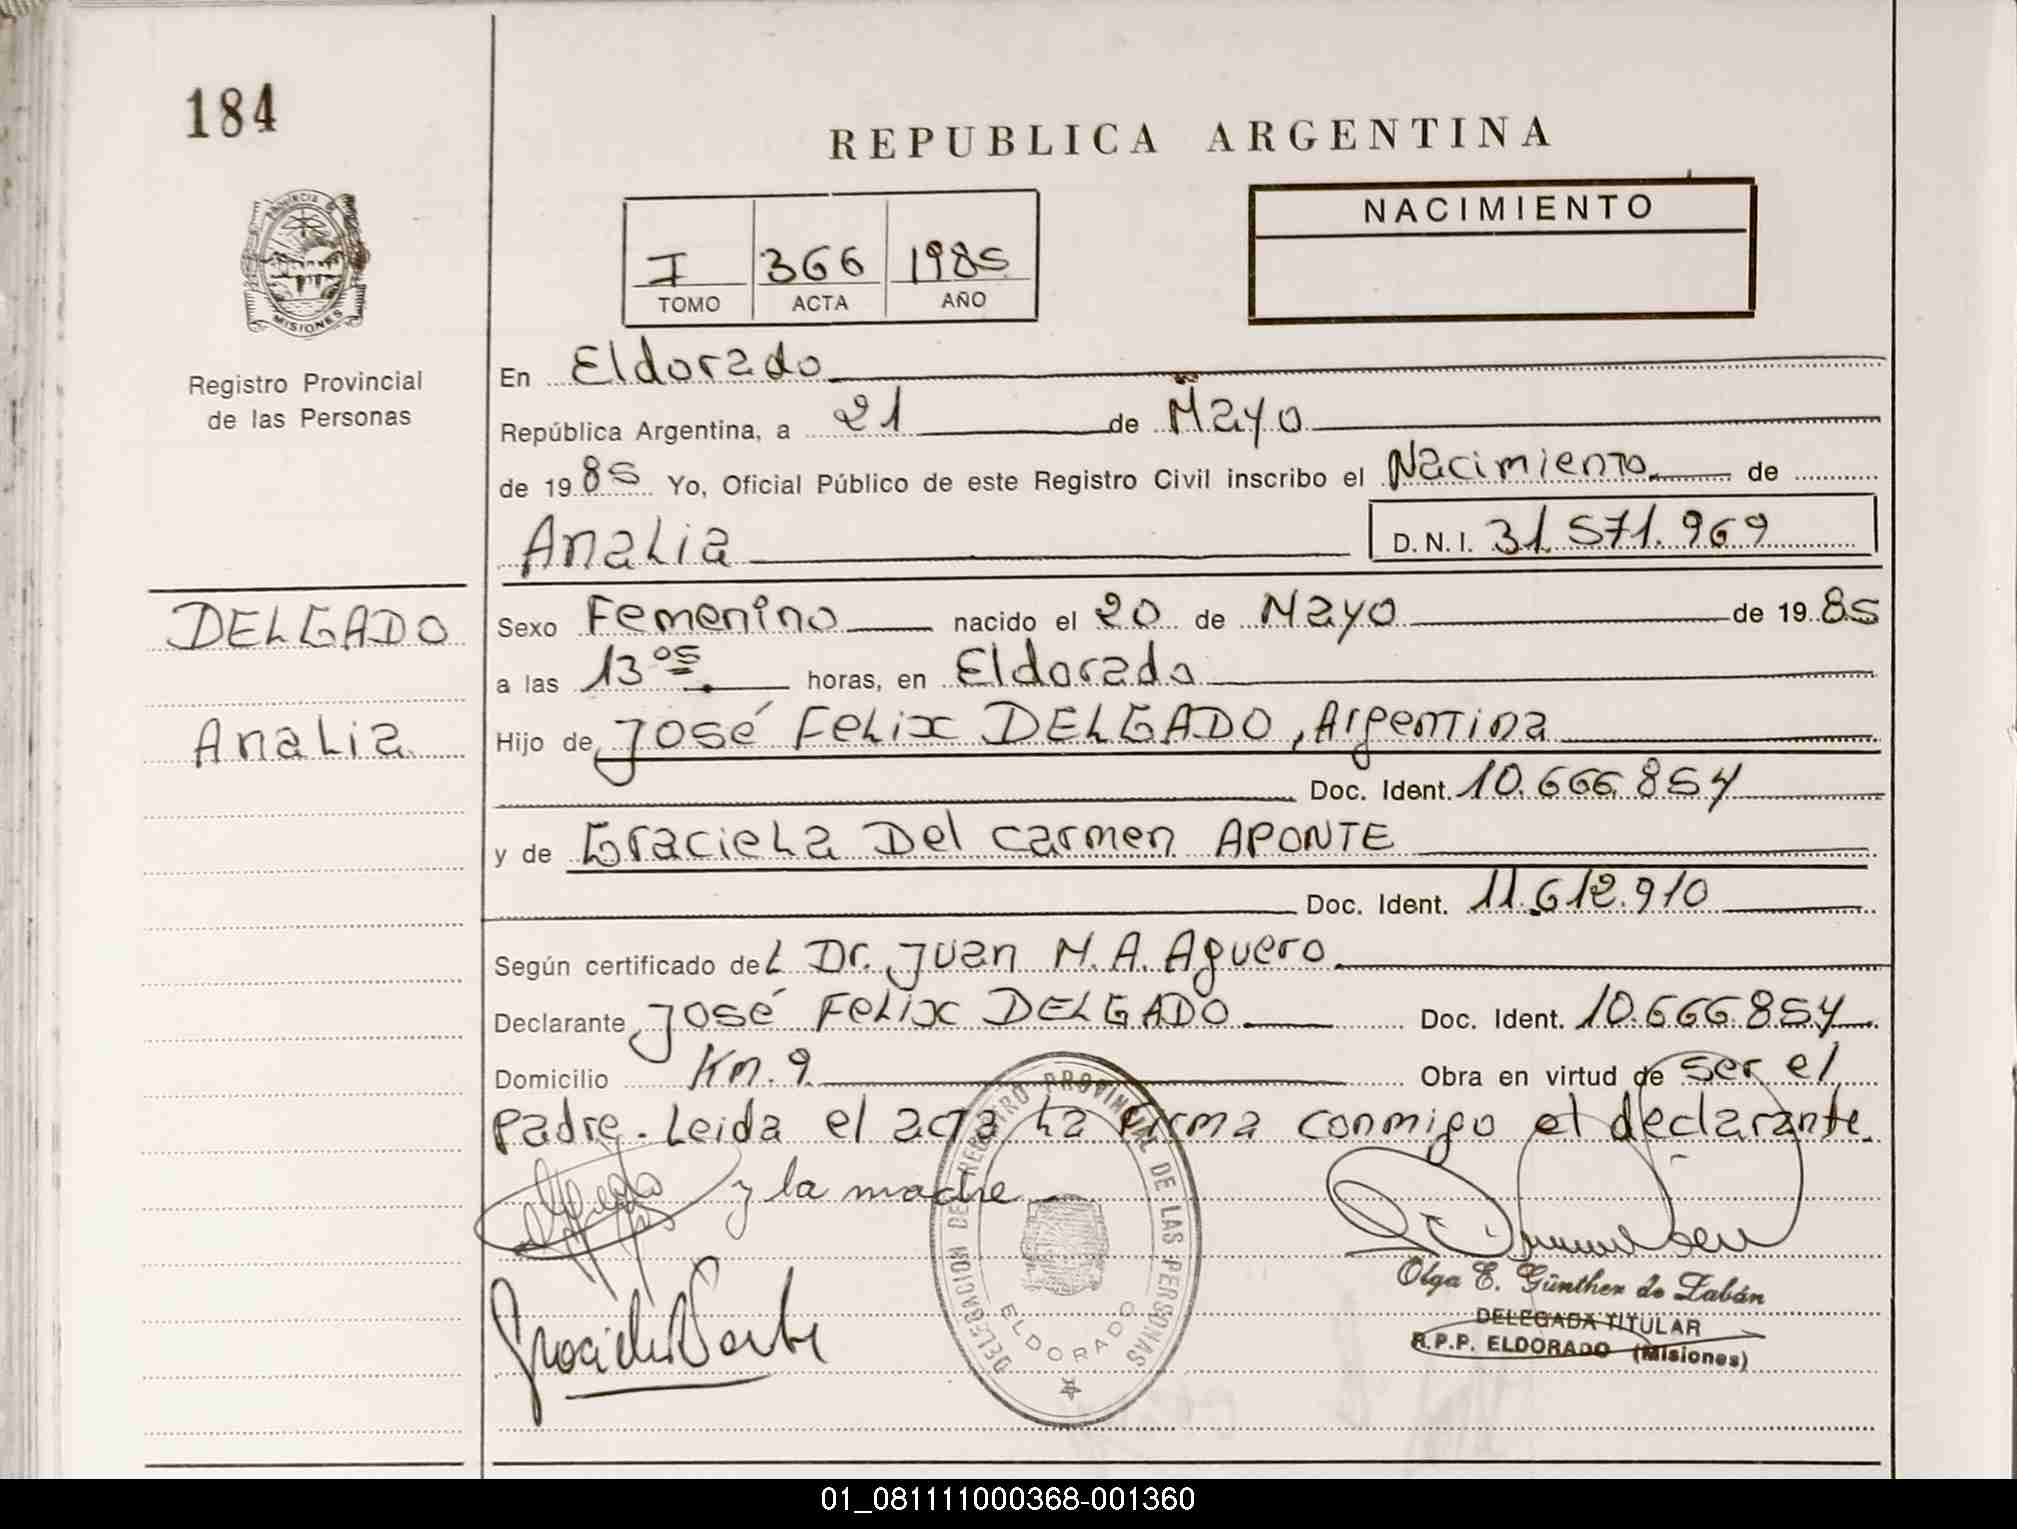 184
REPUBLICA ARGENTINA
PROVINCIA DE
MISIONES
Registro Provincial
de las Personas
NACIMIENTO
I 366 1985
TOMO ACTA AÑO
En Eldorado
República Argentina, a 21 de Mayo
de 1985 Yo, Oficial Público de este Registro Civil inscribo el Nacimiento de
Analia D.N.I. 31.571.969
DELGADO
Analia
Sexo Femenino nacido el 20 de Mayo de 1985
a las 13 05 horas, en Eldorado
Hijo de José Felix DELGADO, Argentina
Doc. Ident. 10.666.854
y de Graciela Del Carmen APONTE
Doc. Ident. 11.612.910
Según certificado del Dr. Juan M. A. Aguero
Declarante José Felix DELGADO Doc. Ident. 10.666.854
Domicilio Km. 9 Obra en virtud de ser el
padre. Leida el acta la firma conmigo el declarante
y la madre
DELEGACION DE REGISTRO PROVINCIAL DE LAS PERSONAS
ELDORADO
Olga E. Günther de Labán
DELEGADA TITULAR
R.P.P. ELDORADO (Misiones)
01_081111000368-001360